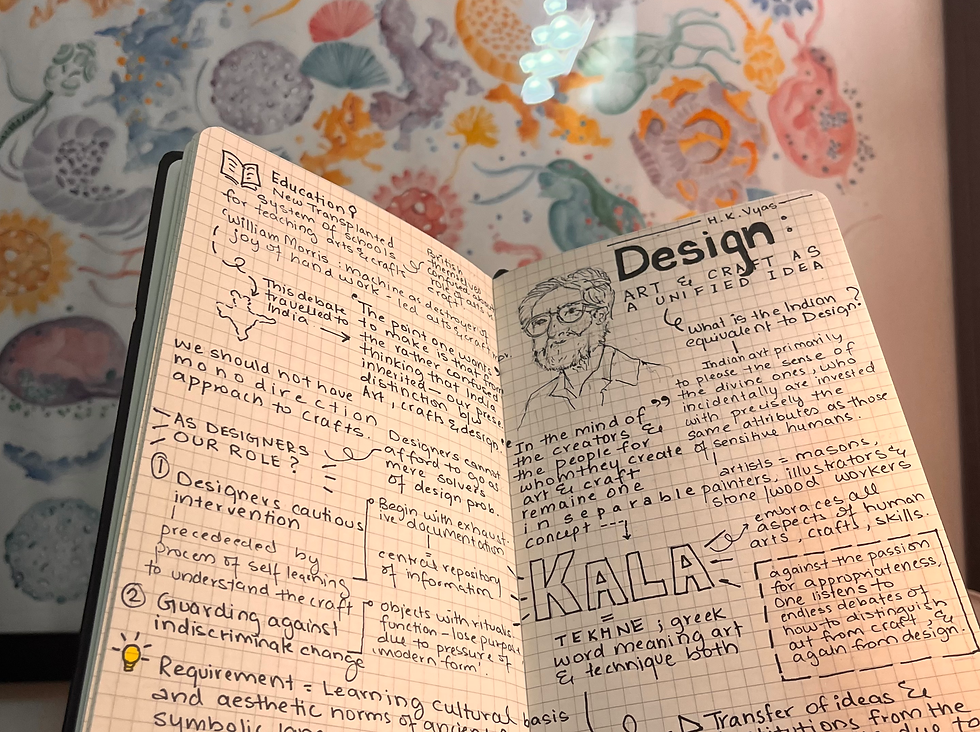 Education?
New Transplanted
system of schools
for teaching arts & crafts
British
themselves
confused about
role of arts &
craft
William Morris : machine as destroyer of
joy of hand work - led arts & crafts
This debate
travelled to
India
"The point one wants
to make is that from
the rather confused
thinking that India
inherited our present
distinction b/w
Art, craft & design."
we should not have
mono direction
approach to crafts.
AS DESIGNERS
OUR ROLE?
Designers cannot
afford to go as
mere solvers
of design prob.
① Designers cautious
intervention
precedeeded by
process of self learning
to understand the craft
Begin with exhaust-
ive documentation
=
central repository
of information
② Guarding against
indiscriminate change
objects with rituals
function - lose purpose
due to pressure of
'modern form'
Requirement = Learning cultural basis
and aesthetic norms of ancient
symbolic
H.K. Vyas
Design:
ART & CRAFT AS
A UNIFIED IDEA
What is the Indian
equivalent to Design?
Indian art primarily
to please the sense of
the divine ones, who
incidentally are invested
with precisely the
same attributes as those
of sensitive humans.
"In the mind of
the creators &
the people for
whom they create
art & craft
remaine one
inseparable
concept ---
"
artists = masons,
painters, illustrators &
stone/wood workers
KALA
embraces all
aspects of human
arts, crafts, skills.
=
TEKHNE ; greek
word meaning art
& technique both
against the passion
for appropriateness,
one listens to
endless debates of
how to distinguish
art from craft, &
again from design
Transfer of ideas &
from the
due to